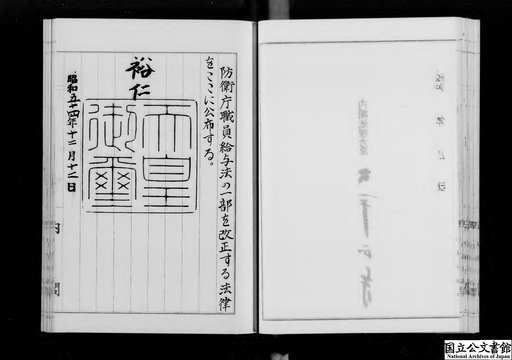 防衛庁職員給与法の一部を改正する法律
をここに公布する。
裕仁
天皇
御璽
昭和五十四年十二月十二日
内閣
国立公文書館
National Archives of Japan